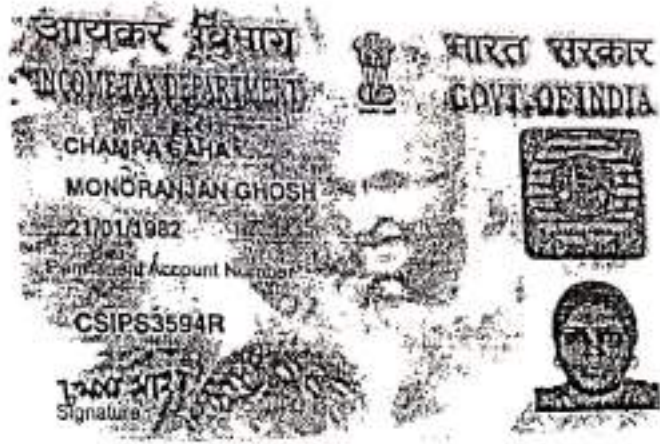 आयकर विभाग
INCOME TAX DEPARTMENT
भारत सरकार
GOVT. OF INDIA
CHAMPA SAHA
MONORANJAN GHOSH
21/01/1982
Permanent Account Number
CSIPS3594R
Signature